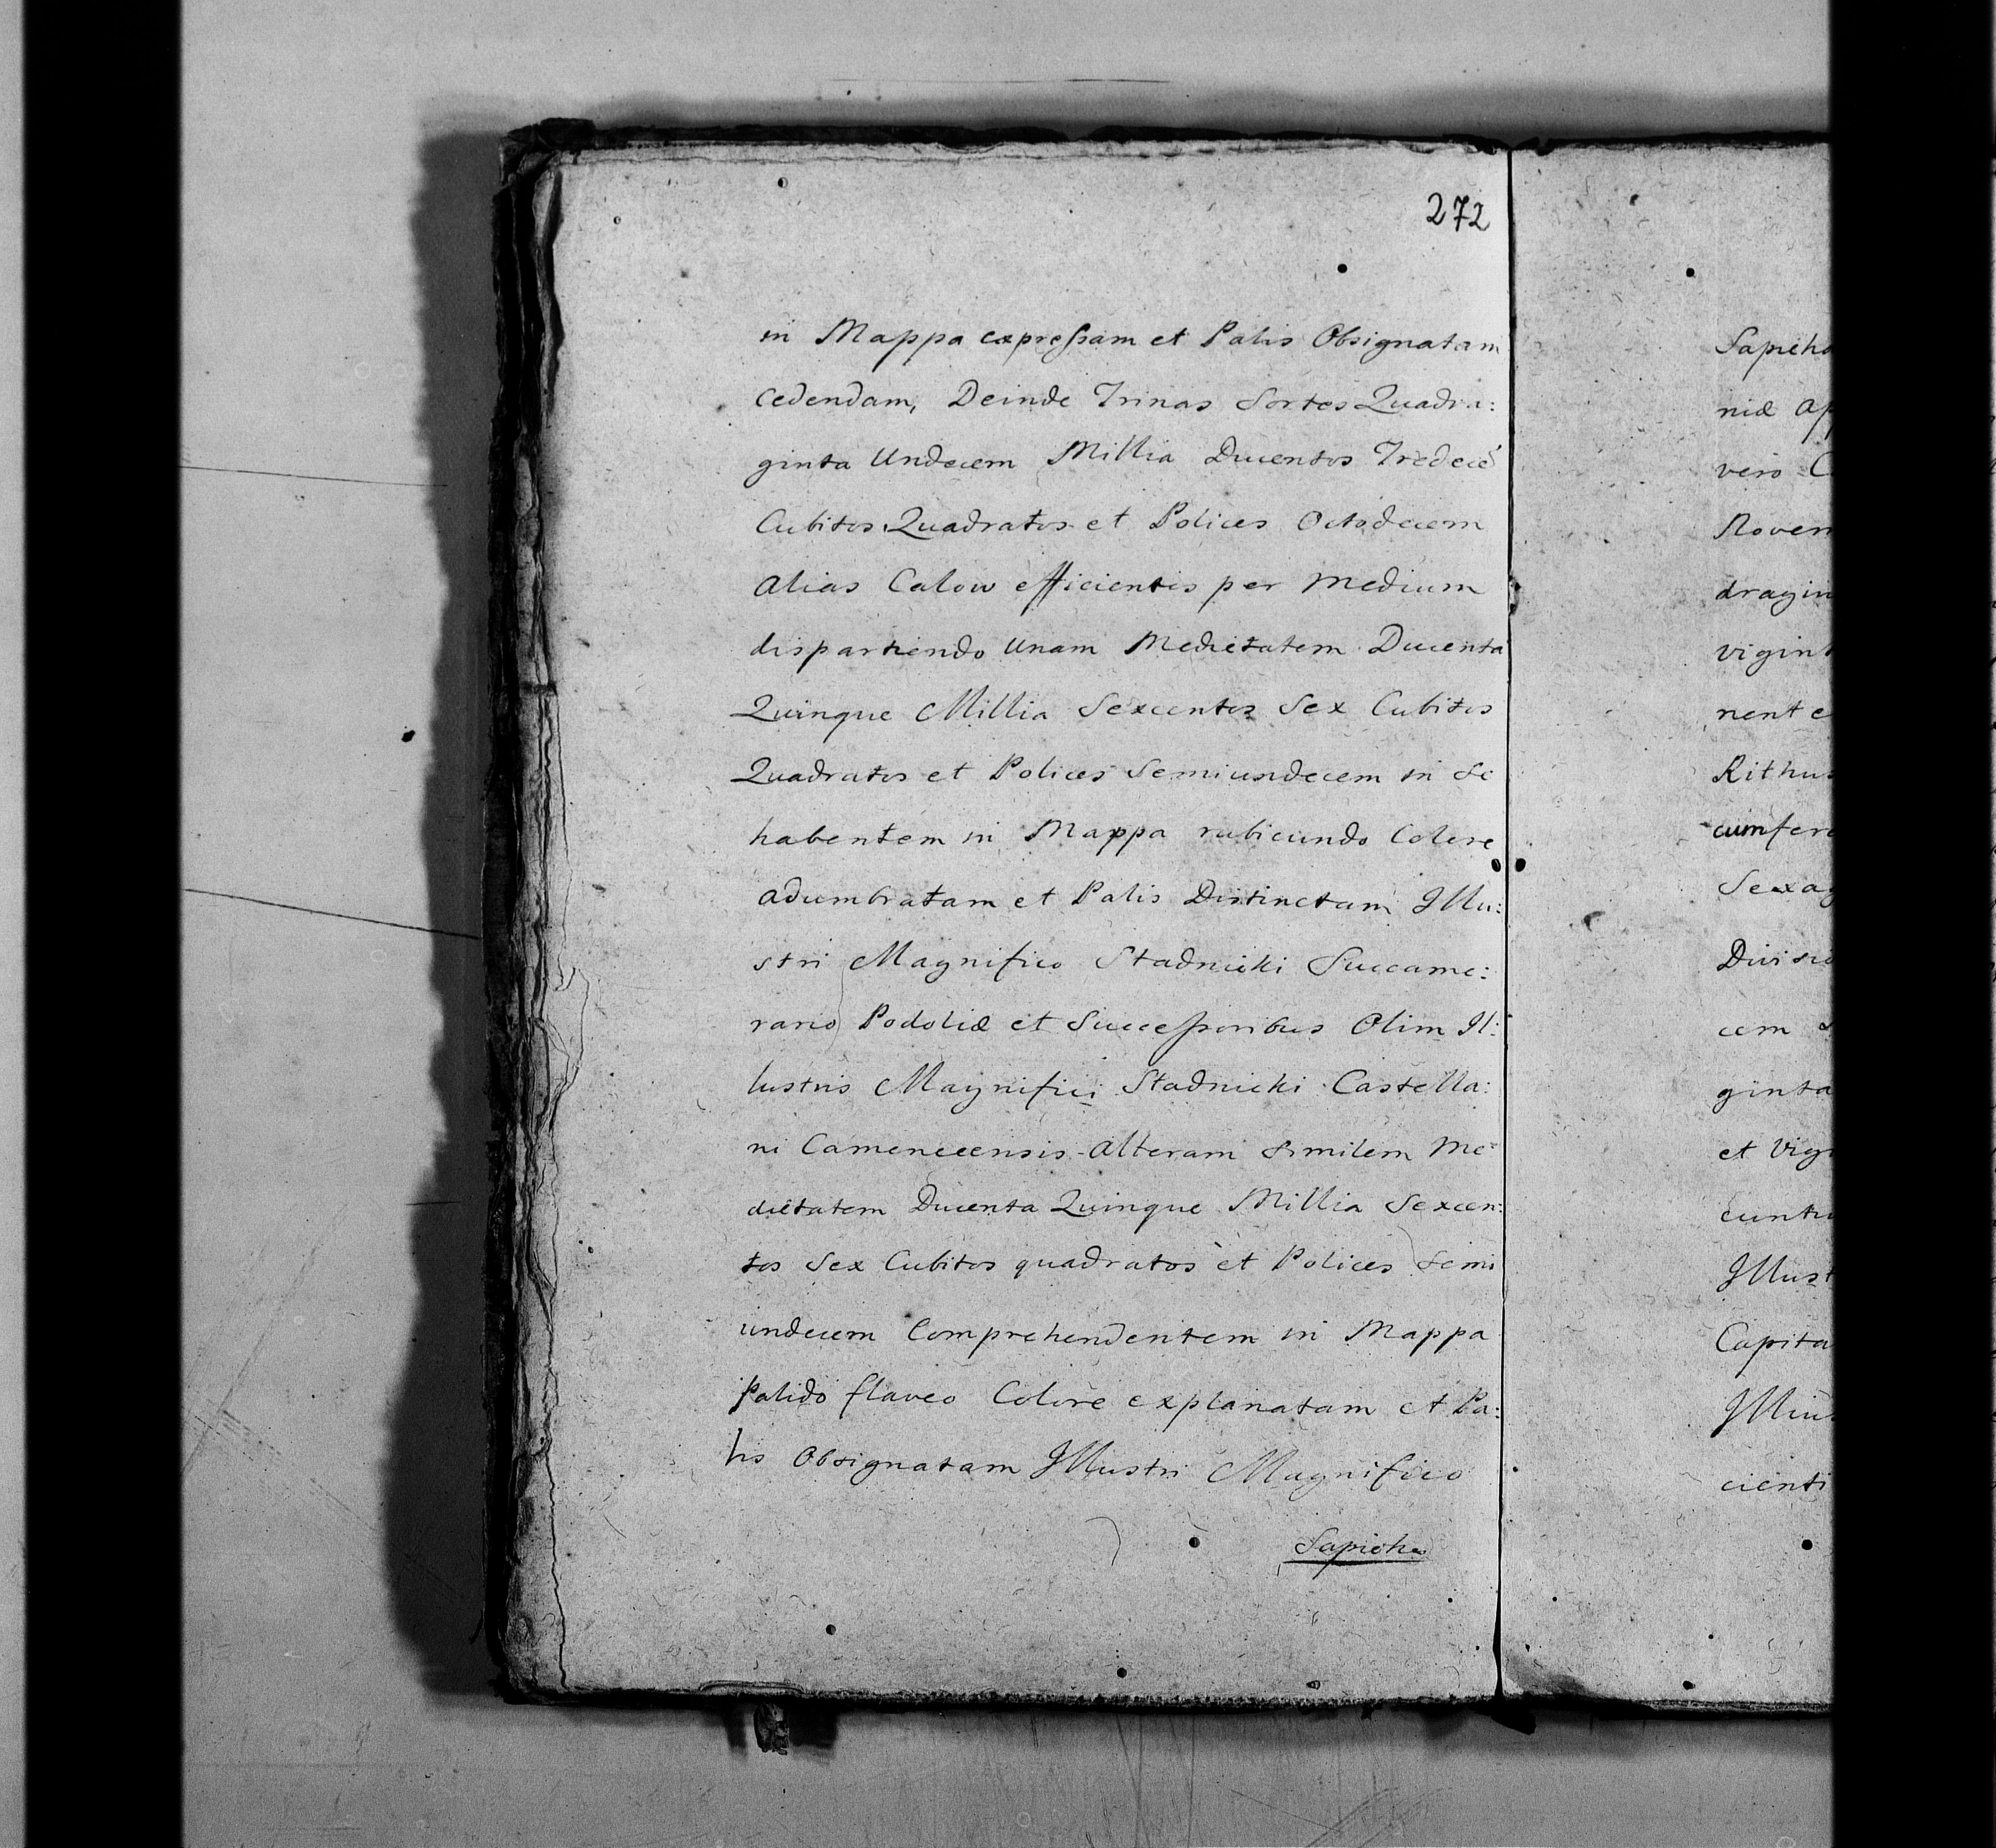 272
in Mappa expressam et Palis Obsignatam
Cedendam, Deinde Trinas Sortes Quadra:
ginta Undecem Millia Ducentos Tredecē
Cubitos Quadratos et Polices Octodecem
alias Calow efficientis per Medium
dispartiendo Unam Medietatem Ducenta
Quinque Millia Sexcentos Sex Cubitos
Quadratos et Polices Semiundecem in Se
habentem in Mappa rubicundo Colore
adumbratam et Palis Distinctam Illu:
stri Magnifico Stadnicki Succame:
rario Podoliæ et Successoribus Olim Il:
lustris Magnifici Stadnicki Castella:
ni Camenecensis alteram Similem Me:
dietatem Ducenta Quinque Millia Sexcen:
tos Sex Cubitos quadratos et Polices Semi
undecem Comprehendentem in Mappa
Palido flaveo Colore explanatam et Pa:
lis Obsignatam Illustri Magnifico
Sapieha
Sapieha
niæ Ap
vero C
Noven
dragin
vigint
nent e
Rithus
cumfere
Sexag
Divisio
cem
ginta
et Vigi
cuntu
Illust
Capita
Illius
cienti